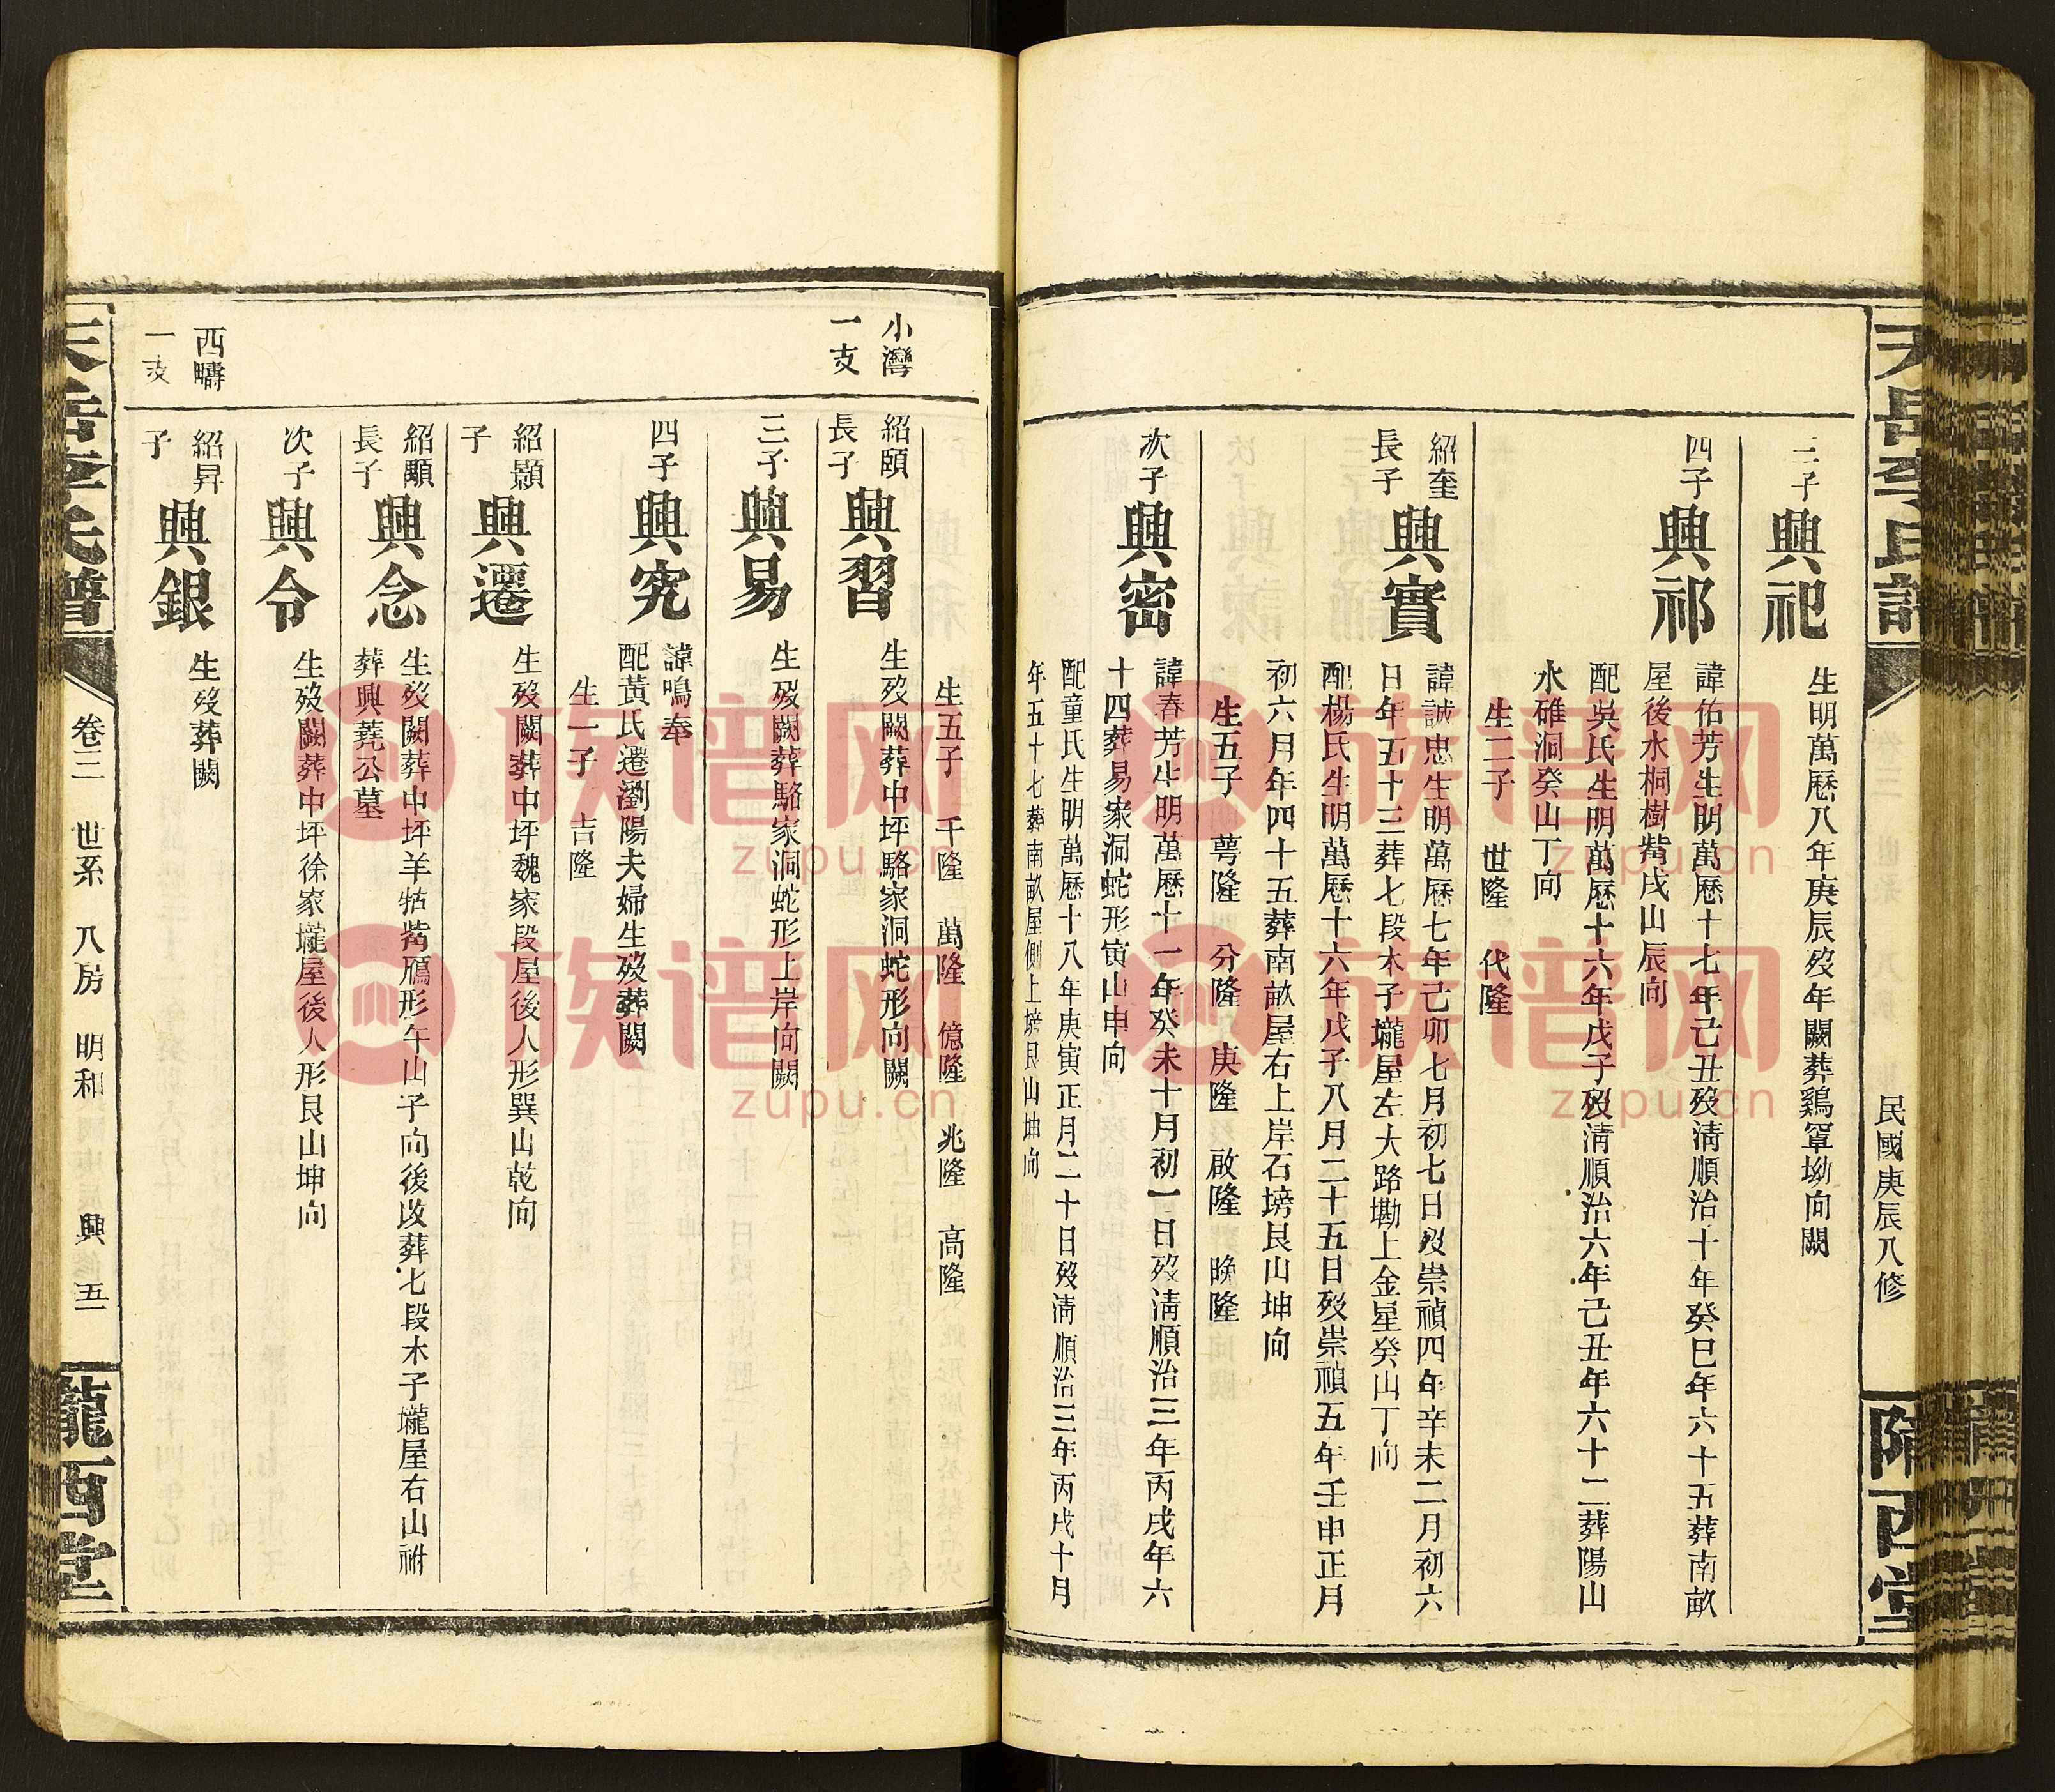 天岳李氏譜
民國庚辰八修
隴西堂
三子
興祀
生明萬歷八年庚辰歿年闕葬鷄窠坳向闕
四子
興祁
諱佑芳生明萬歷十七年己丑歿淸順治十年癸巳年六十五葬南畝
屋後水桐樹觜戌山辰向
配吳氏生明萬歷十六年戊子歿淸順治六年己丑年六十二葬陽山
水碓洞癸山丁向
生二子 世隆 代隆
紹奎
長子
興實
諱誠忠生明萬歷七年己卯七月初七日歿崇禎四年辛未二月初六
日年五十三葬七段木子壠屋左大路墈上金星癸山丁向
配楊氏生明萬歷十六年戊子八月二十五日歿崇禎五年壬申正月
初六月年四十五葬南畝屋右上岸石塝艮山坤向
生五子 萼隆 分隆 庚隆 啟隆 晚隆
次子
興密
諱春芳生明萬歷十一年癸未十月初一日歿淸順治三年丙戌年六
十四葬易家洞蛇形寅山申向
配童氏生明萬歷十八年庚寅正月二十日歿淸順治三年丙戌十月
年五十七葬南畝屋側上塝艮山坤向
生五子 千隆 萬隆 億隆 兆隆 高隆
小灣
一支
紹頤
長子
興習
生歿闕葬中坪駱家洞蛇形向闕
三子
興易
生歿闕葬駱家洞蛇形上岸向闕
四子
興究
諱鳴奉
配黃氏遷瀏陽夫婦生歿葬闕
生一子 吉隆
紹顯
子
興遷
生歿闕葬中坪魏家段屋後人形巽山乾向
紹顒
長子
興念
生歿闕葬中坪羊牯觜鴈形午山子向後改葬七段木子壠屋右山祔
葬興蕘公墓
次子
興令
生歿闕葬中坪徐家壠屋後人形艮山坤向
西疇
一支
紹昇
子
興銀
生歿葬闕
天岳李氏譜
卷三 世系 八房 明和 興 五一
隴西堂
族谱网
zupu.cn
族谱网
zupu.cn
族谱网
zupu.cn
族谱网
zupu.cn